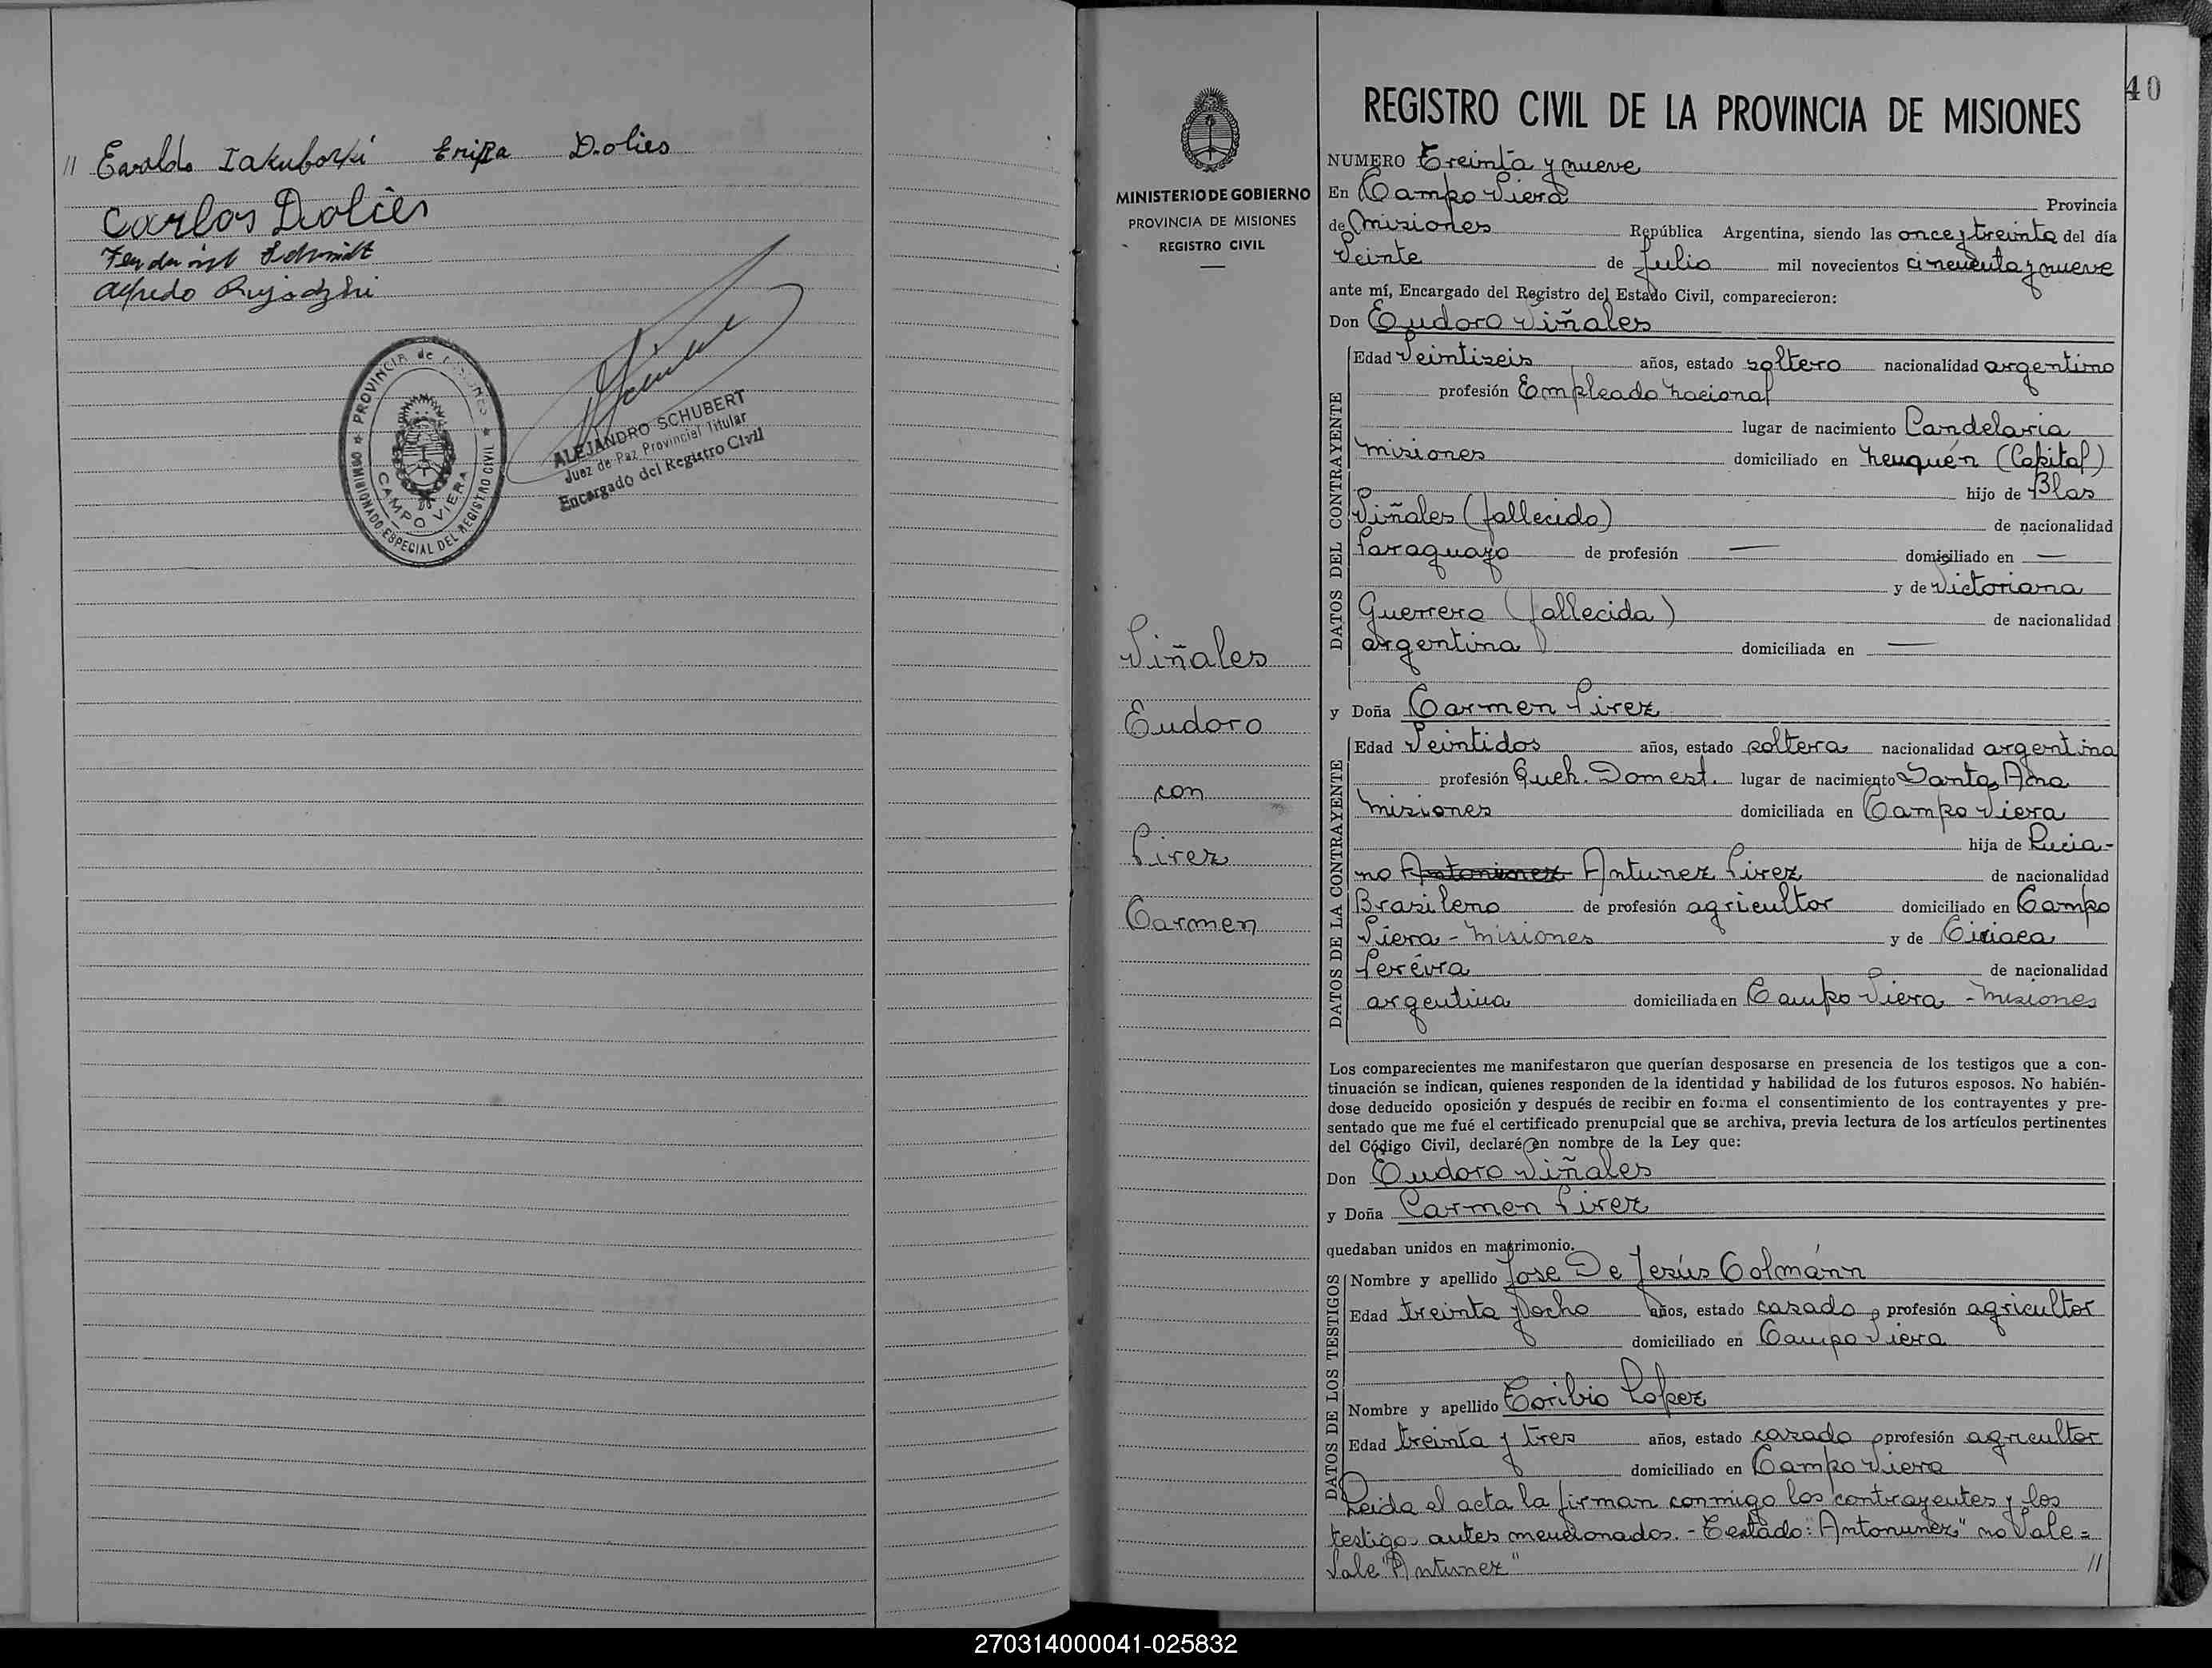 // Evaldo Iakuboski Erika Dolies
Carlos Dolies
Schmidt
Alfredo
PROVINCIA de MISIONES
CAMPO VIERA
COMISIONADO ESPECIAL DEL REGISTRO CIVIL
ALEJANDRO SCHUBERT
Juez de Paz Provincial Titular
Encargado del Registro Civil
MINISTERIO DE GOBIERNO
PROVINCIA DE MISIONES
REGISTRO CIVIL
Viñales
Eudoro
con
Pirez
Carmen
40
REGISTRO CIVIL DE LA PROVINCIA DE MISIONES
NUMERO Treinta y nueve
En Campo Viera Provincia
de Misiones República Argentina, siendo las once y treinta del día
Veinte de Julio mil novecientos cincuenta y nueve
ante mí, Encargado del Registro del Estado Civil, comparecieron:
Don Eudoro Viñales
DATOS DEL CONTRAYENTE
Edad Veintiseis años, estado soltero nacionalidad argentino
profesión Empleado Nacional
lugar de nacimiento Candelaria
Misiones domiciliado en Neuquén (Capital)
hijo de Blas
Viñales (fallecido) de nacionalidad
Paraguayo de profesión — domiciliado en —
y de Victoriana
Guerrero (fallecida) de nacionalidad
argentina domiciliada en —
y Doña Carmen Pirez
DATOS DE LA CONTRAYENTE
Edad Veintidos años, estado soltera nacionalidad argentina
profesión Queh. Domest. lugar de nacimiento Santa Ana
Misiones domiciliada en Campo Viera
hija de Lucia-
no Antonunez Antunez Pirez de nacionalidad
Brasileno de profesión agricultor domiciliado en Campo
Viera - Misiones y de Ciriaca
Peréyra de nacionalidad
argentina domiciliada en Campo Viera - Misiones
Los comparecientes me manifestaron que querían desposarse en presencia de los testigos que a con-
tinuación se indican, quienes responden de la identidad y habilidad de los futuros esposos. No habién-
dose deducido oposición y después de recibir en forma el consentimiento de los contrayentes y pre-
sentado que me fué el certificado prenupcial que se archiva, previa lectura de los artículos pertinentes
del Código Civil, declaré en nombre de la Ley que:
Don Eudoro Viñales
y Doña Carmen Pirez
quedaban unidos en matrimonio.
DATOS DE LOS TESTIGOS
Nombre y apellido Jose De Jesús Colmánn
Edad treinta y ocho años, estado casado profesión agricultor
domiciliado en Campo Viera
Nombre y apellido Toribio Lopez
Edad treinta y tres años, estado casado profesión agricultor
domiciliado en Campo Viera
Leida el acta la firman conmigo los contrayentes y los
testigos antes mencionados. - Testado: "Antonunez" no Vale =
Vale "Antunez" //
270314000041-025832